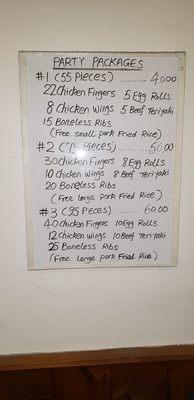 PARTY PACKAGES
#1 (55 Pieces) ......... 40.00
22 Chicken Fingers 5 Egg Rolls
8 Chicken Wings 5 Beef Teriyaki
15 Boneless Ribs
(Free small pork Fried Rice)
#2 (75 Pieces) ......... 50.00
30 Chicken Fingers 8 Egg Rolls
10 Chicken Wings 8 Beef Teriyaki
20 Boneless Ribs
(Free large pork Fried Rice)
#3 (95 Pieces) ......... 60.00
40 Chicken Fingers 10 Egg Rolls
12 Chicken Wings 10 Beef Teriyaki
25 Boneless Ribs
(Free large pork Fried Rice)